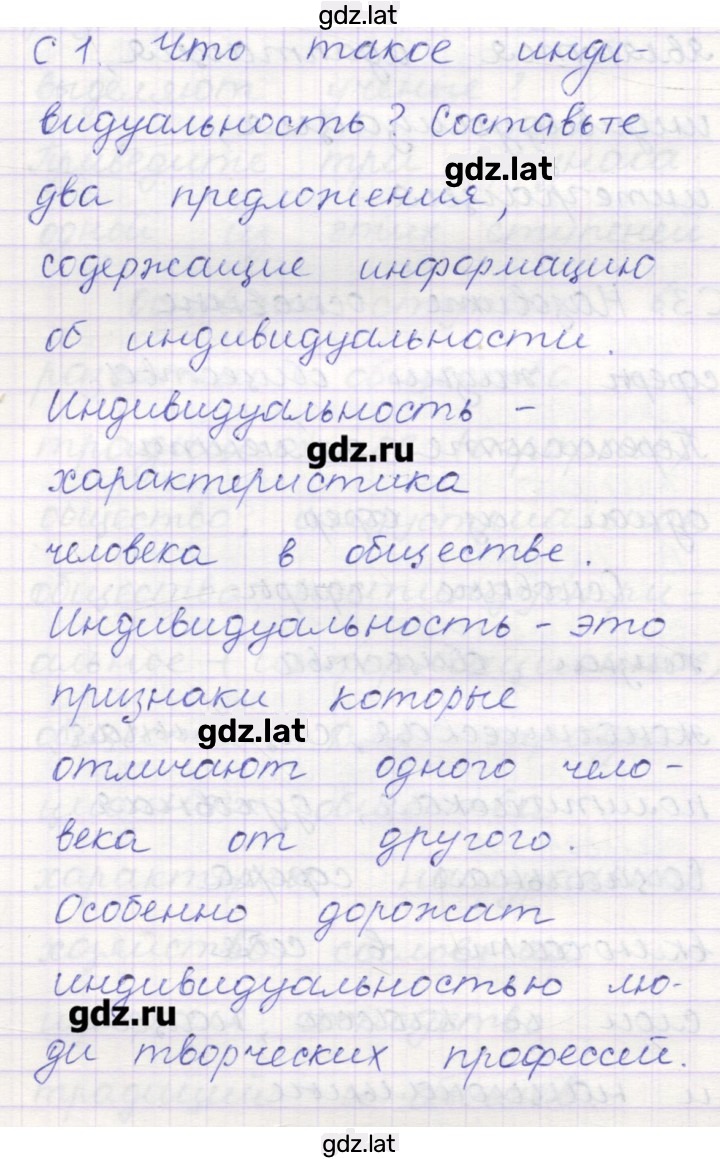 gdz.lat
С 1. Что такое инди-
видуальность? Составьте
gdz.lat
два предложения,
содержащие информацию
об индивидуальности.
Индивидуальность -
gdz.ru
характеристика
человека в обществе.
Индивидуальность - это
признаки которые
gdz.lat
отличают одного чело-
века от другого.
Особенно дорожат
индивидуальностью лю-
gdz.ru
ди творческих профессий.
gdz.lat